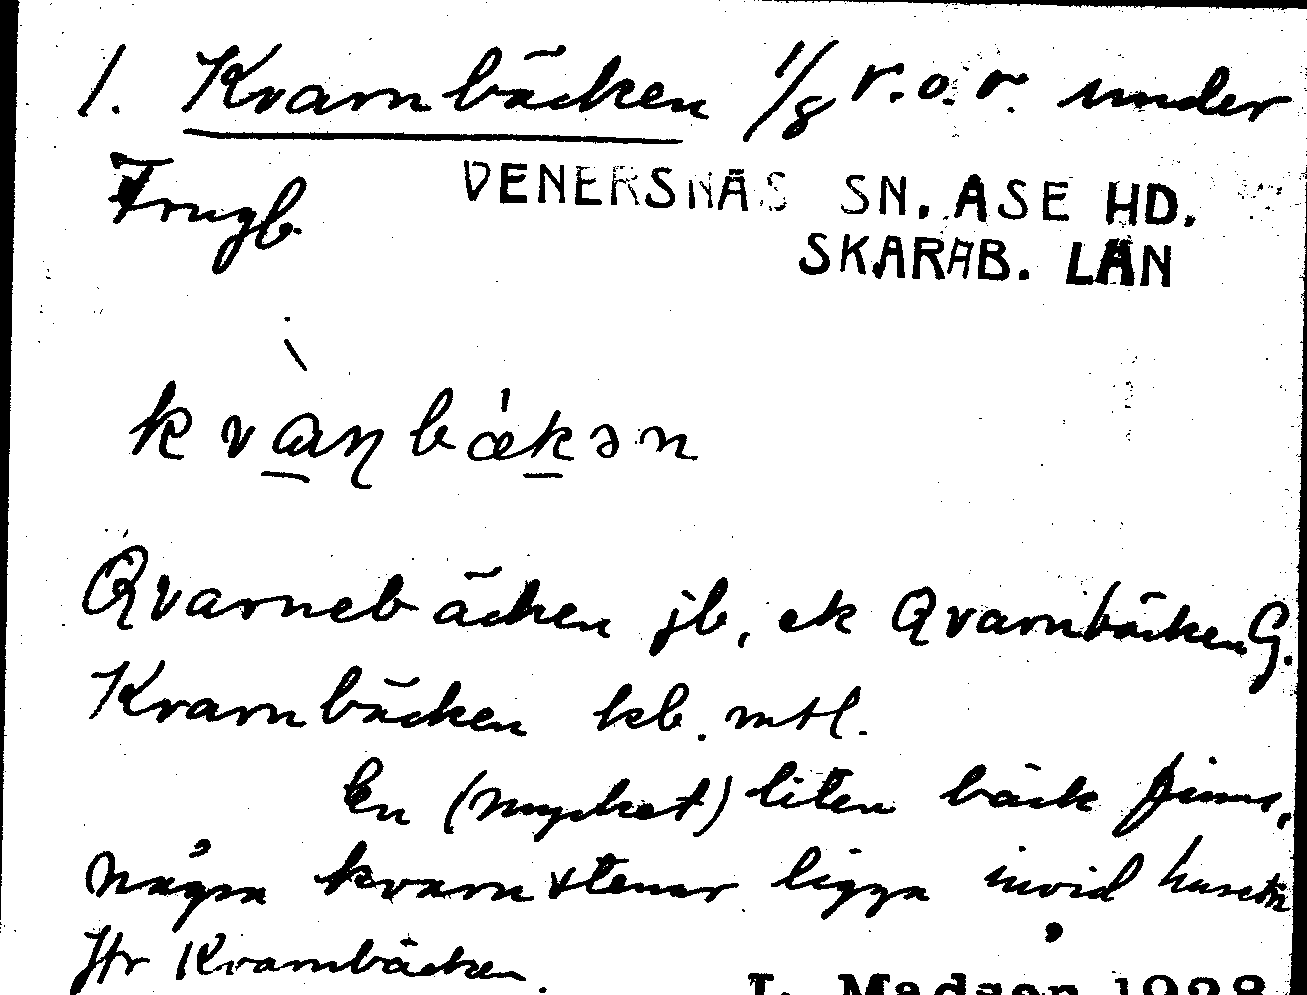 1. Kvarnbäcken 1/8 r.o.r. under
Frugb.
VENERSNÄS SN. ÅSE HD.
SKARAB. LÄN
kvàɳbǽkən
Qvarnebäcken jb, ek Qvarnbäcken G.
Kvarnbäcken kb. mtl.
En (mycket) liten bäck finns,
några kvarnstenar ligga invid
Jfr Kvarnbäcken.
L. Madsen 1928